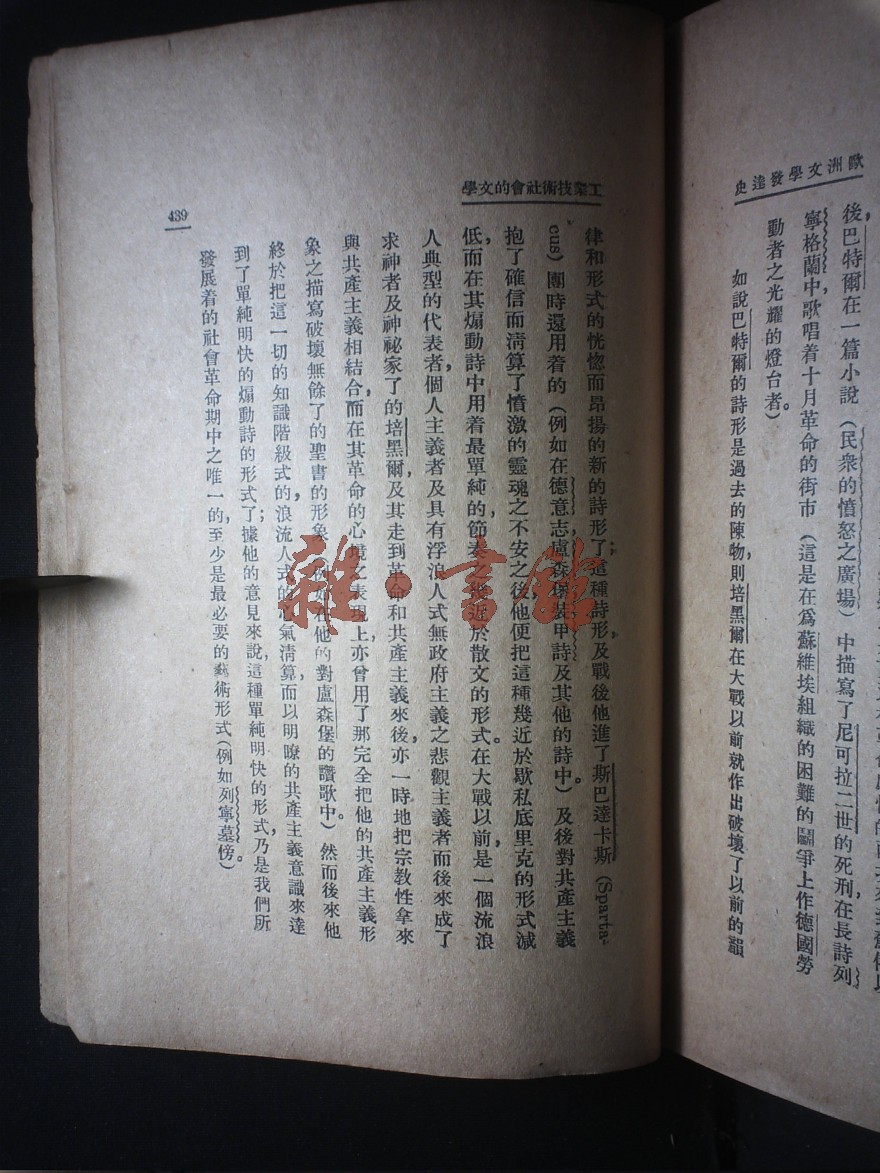 歐洲文學發達史
後巴特爾在一篇小說（民衆的憤怒之廣場）中描寫了尼可拉二世的死刑，在長詩列
寧格蘭中歌唱着十月革命的街市（這是在爲蘇維埃組織的困難的鬪爭上作德國勞
動者之光耀的燈台者）。
如說巴特爾的詩形是過去的陳物，則培黑爾在大戰以前就作出破壞了以前的韻
工業技術社會的文學
律和形式的恍惚而昂揚的新的詩形了；這種詩形，及戰後他進了斯巴達卡斯（Sparta-
cus）團時還用着的（例如在德意志盧森堡裝甲詩及其他的詩中）。及後對共產主義
抱了確信而淸算了憤激的靈魂之不安之後，他便把這種幾近於歇私底里克的形式減
低，而在其煽動詩中用着最單純的，節奏之幾近於散文的形式。在大戰以前，是一個流浪
人典型的代表者，個人主義者及具有浮浪人式無政府主義之悲觀主義者而後來成了
求神者及神祕家了的培黑爾，及其走到革命和共產主義來後，亦一時地把宗教性拿來
與共產主義相結合，而在其革命的心境之表現上，亦曾用了那完全把他的共產主義形
象之描寫破壞無餘了的聖書的形象（例如在他的對盧森堡的讚歌中）。然而後來他
終於把這一切的知識階級式的，浪流人式的心氣淸算，而以明瞭的共產主義意識來達
到了單純明快的煽動詩的形式了；據他的意見來說，這種單純明快的形式，乃是我們所
發展着的社會革命期中之唯一的，至少是最必要的藝術形式（例如列寧墓傍）。
439
雜·書館